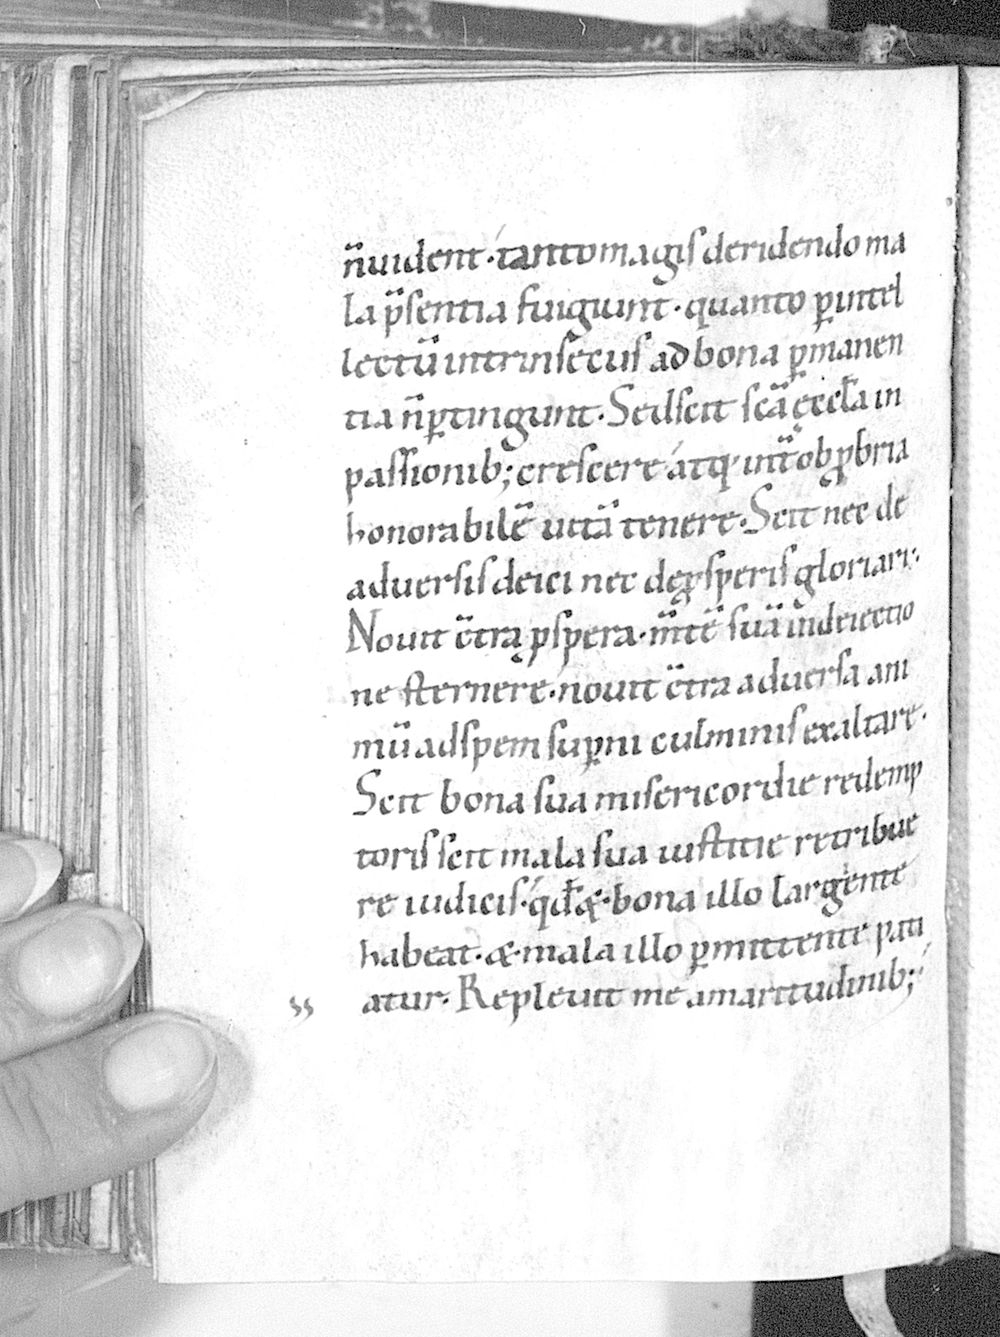 n̄ uident· tanto magis deridendo ma
la p̄sentia fuigiunt· quanto ꝑ intel
lectū intrinsecus ad bona ꝑmanen
tia n̄ ꝑtingunt· Sed scit sc̄a ęccła in
passionib; crescere atq· int̄ obꝓbria
honorabilē uitā tenere· Scit nec de
aduersis deici nec de ꝓsperis gloriari·
Nouit c̄tra ꝓspera· m̄tē suā in deiectio
ne sternere· nouit c̄tra aduersa ani
mū ad spem suꝑni culminis exaltare·
Scit bona sua misericordie redemp
toris scit mala sua iustitie retribue
re iudicis· qđ & bona illo largente
habeat· & mala illo ꝑmittente pati
atur· Repleuit me amaritudinib;